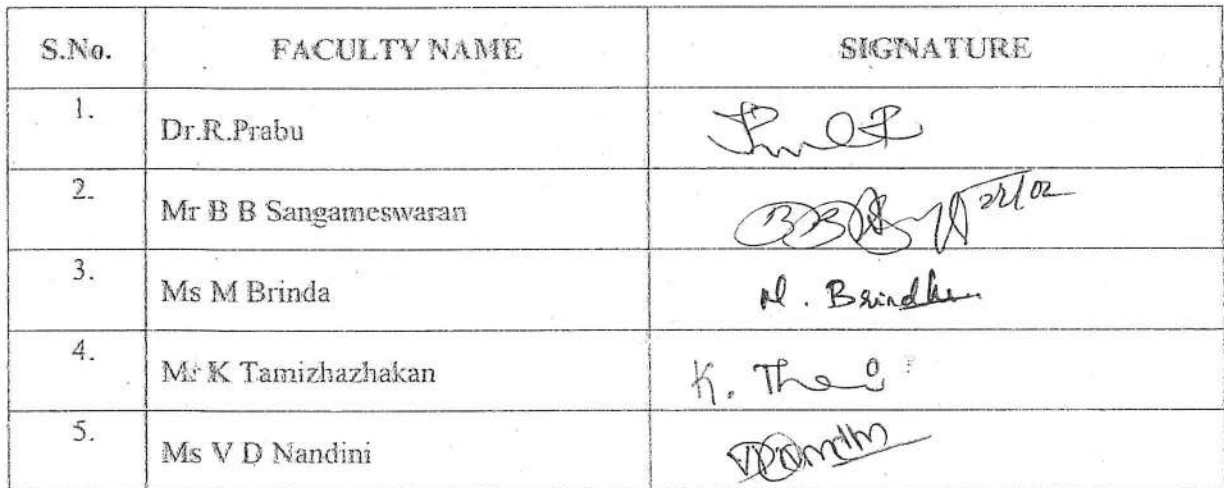 S.No. FACULTY NAME SIGNATURE
1. Dr.R.Prabu
2. Mr B B Sangameswaran 22/02
3. Ms M Brinda M. Brindha
4. Mr K Tamizhazhakan K.
5. Ms V D Nandini